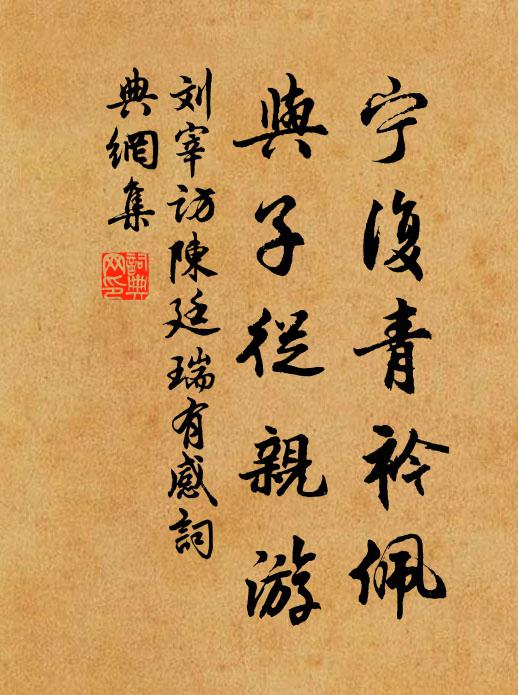 宁復青衿佩
與子從親游
刘宰访陳廷瑞有感詞
典網集
詞典网印